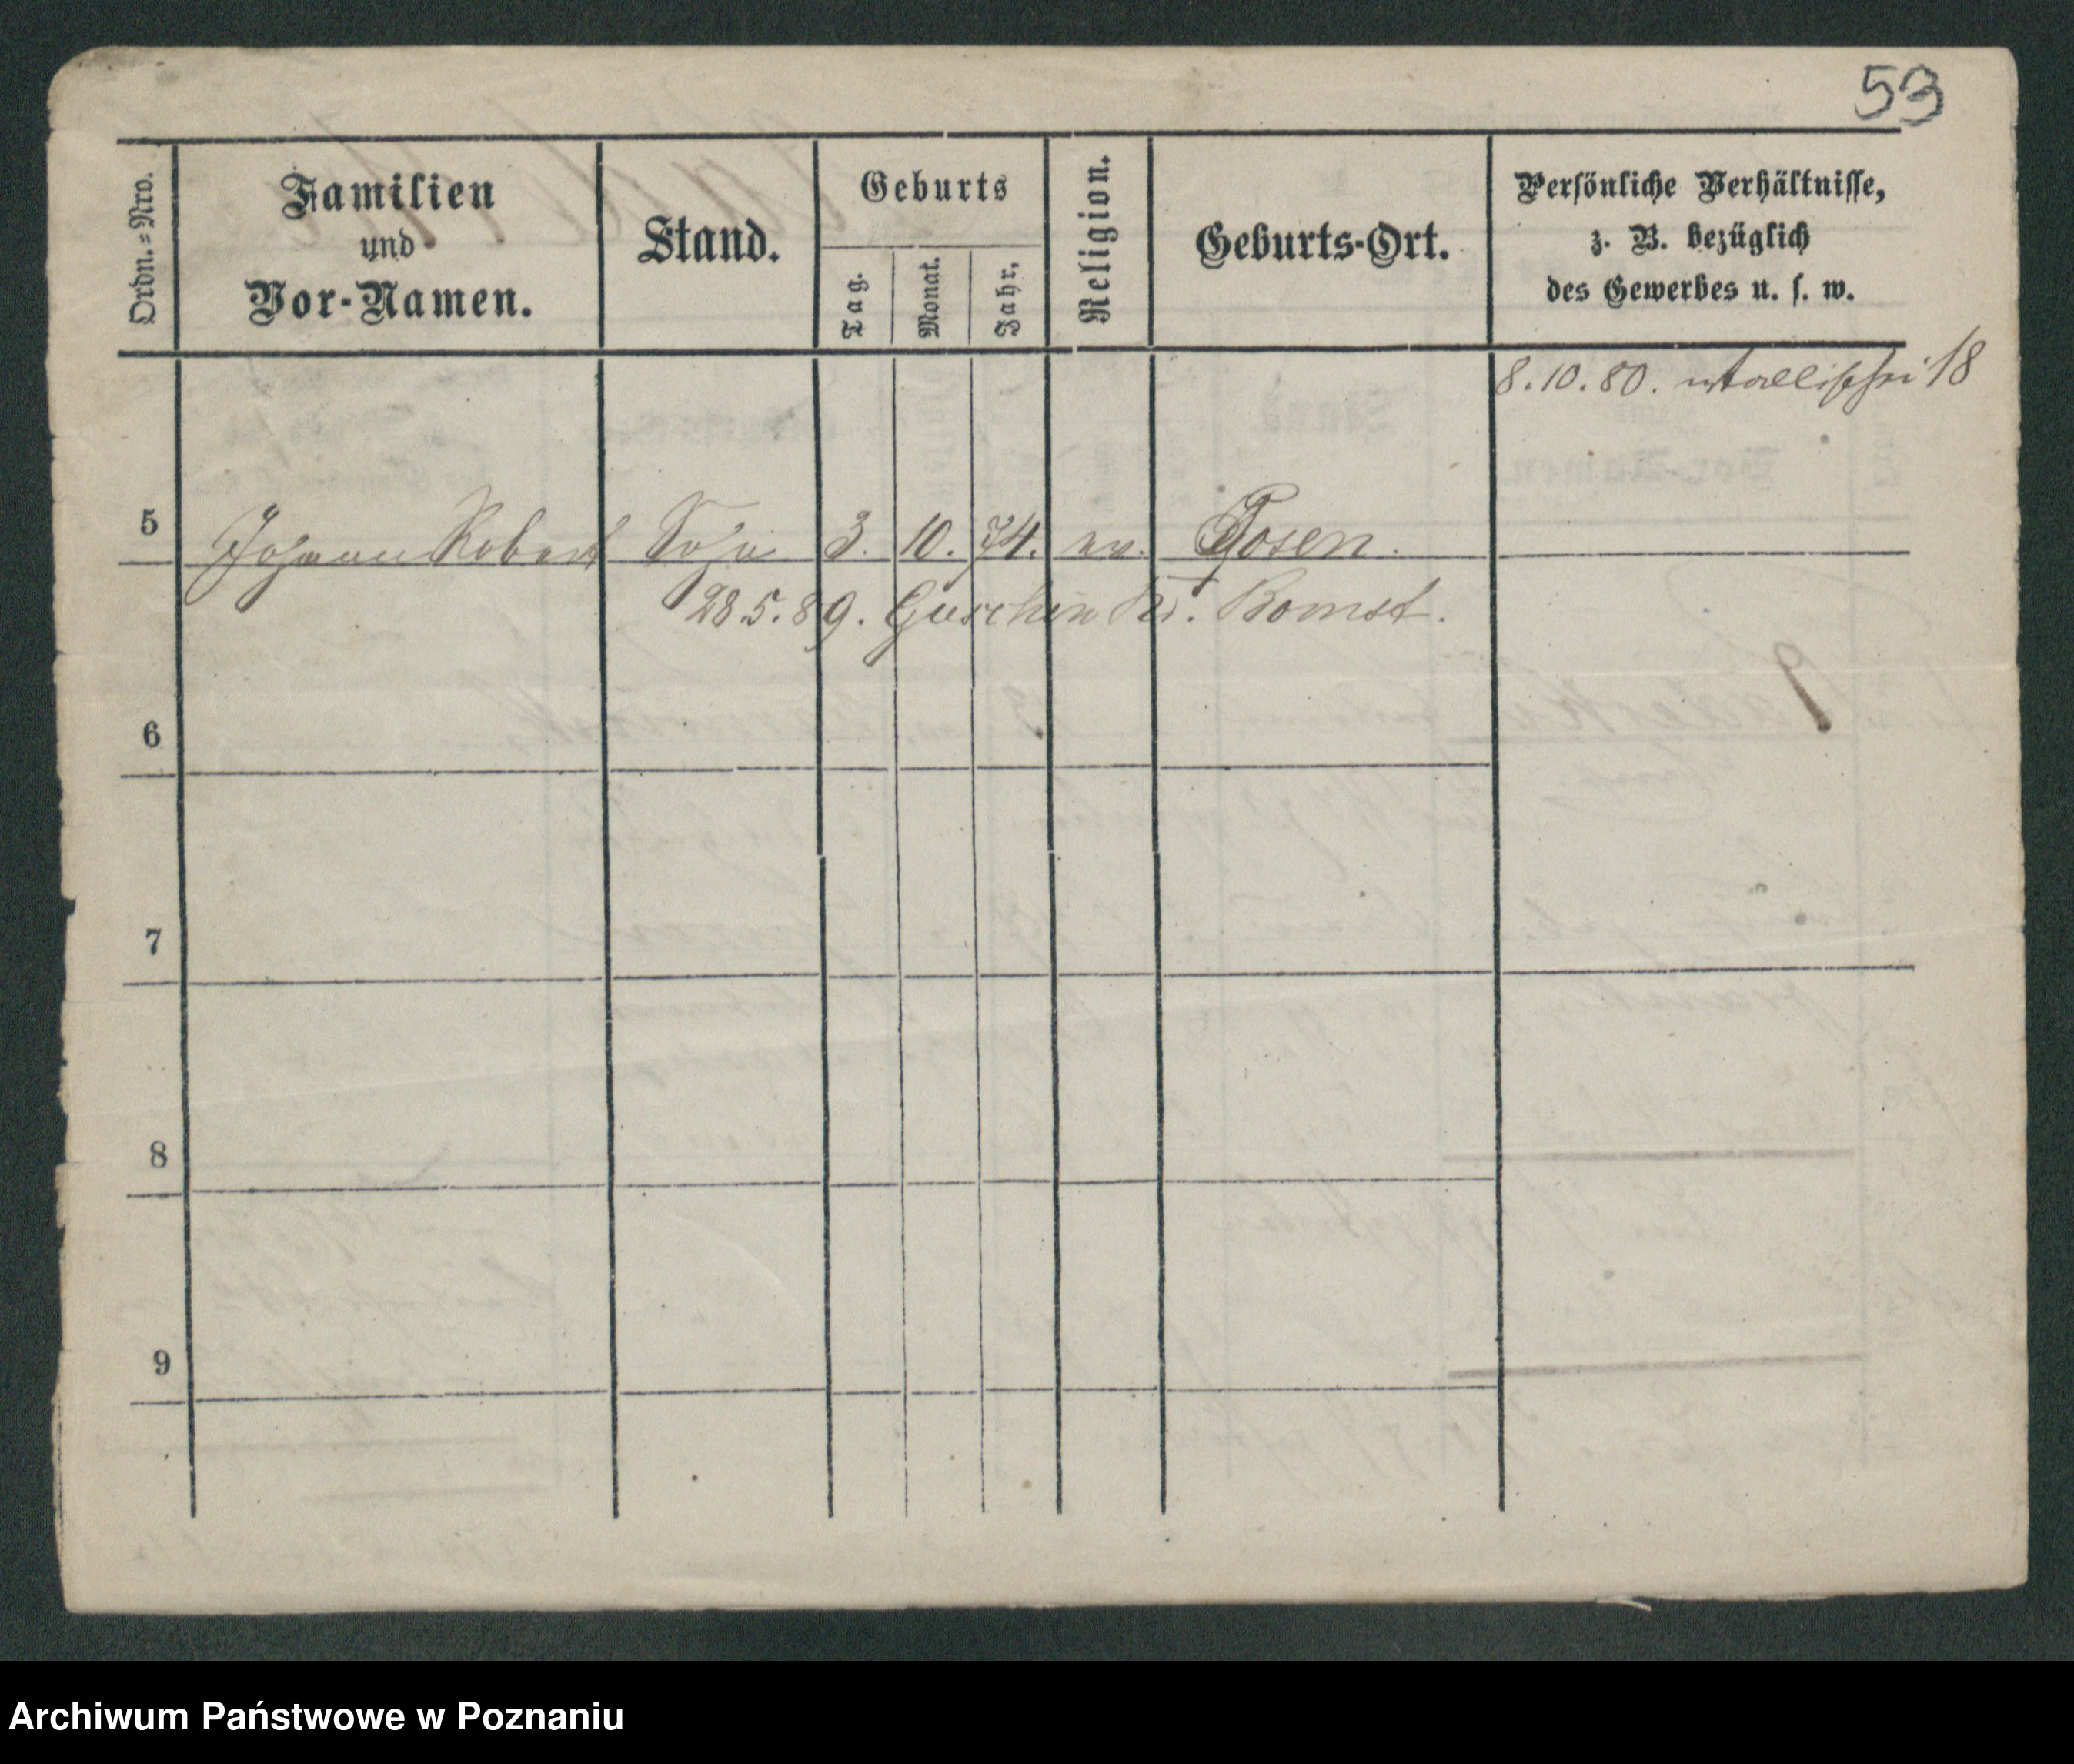 53
Ordn.=Nro.
Familien
und
Vor-Namen.
Stand.
Geburts
Tag.
Monat.
Jahr.
Religion.
Geburts-Ort.
Persönliche Verhältnisse,
z. B. bezüglich
des Gewerbes u. s. w.
8.10.80. Wallischei 18
5 Johann Robert Sohn 3. 10. 74. ev. Posen.
28.5.89. Guschin Kr. Bomst.
6
7
8
9
Archiwum Państwowe w Poznaniu